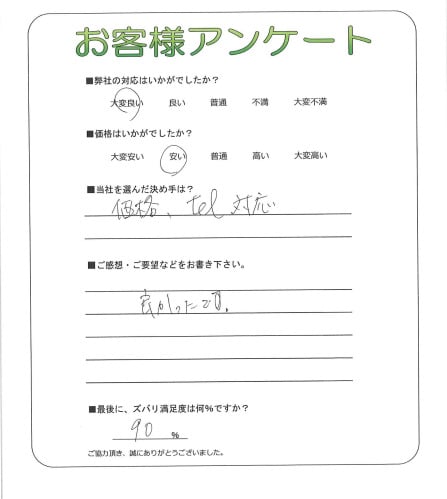 お客様アンケート
■弊社の対応はいかがでしたか?
大変良い 良い 普通 不満 大変不満
■価格はいかがでしたか?
大変安い 安い 普通 高い 大変高い
■当社を選んだ決め手は?
価格、tel 対応
■ご感想・ご要望などをお書き下さい。
良かったです。
■最後に、ズバリ満足度は何%ですか?
90 %
ご協力頂き、誠にありがとうございました。